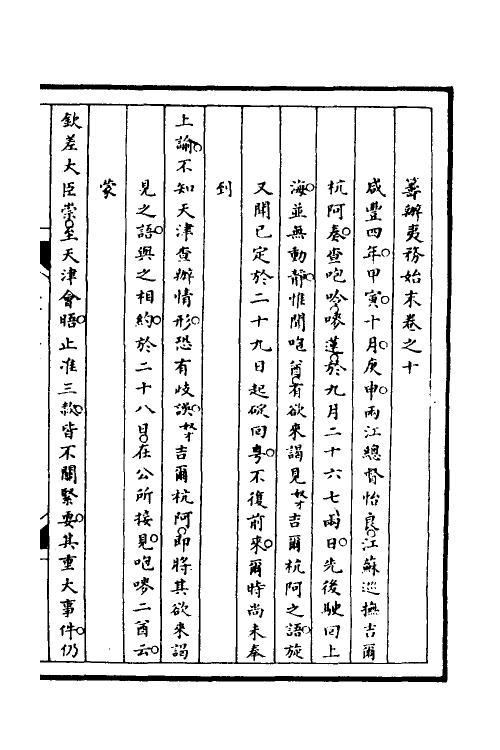 籌辦夷務始末卷之十
咸豐四年甲寅十月庚申兩江總督怡良江蘇巡撫吉爾
杭阿奏查咆唥嘜蓮於九月二十六七兩日先後駛回上
海並無動靜惟聞咆酋有欲來謁見奴才吉爾杭阿之語旋
又聞已定於二十九日起碇回粵不復前來爾時尚未奉
到
上諭不知天津查辦情形恐有歧誤奴才吉爾杭阿即將其欲來謁
見之語與之相約於二十八日在公所接見咆嘜二酋云
蒙
欽差大臣崇至天津會晤止准三款皆不關緊要其重大事件仍